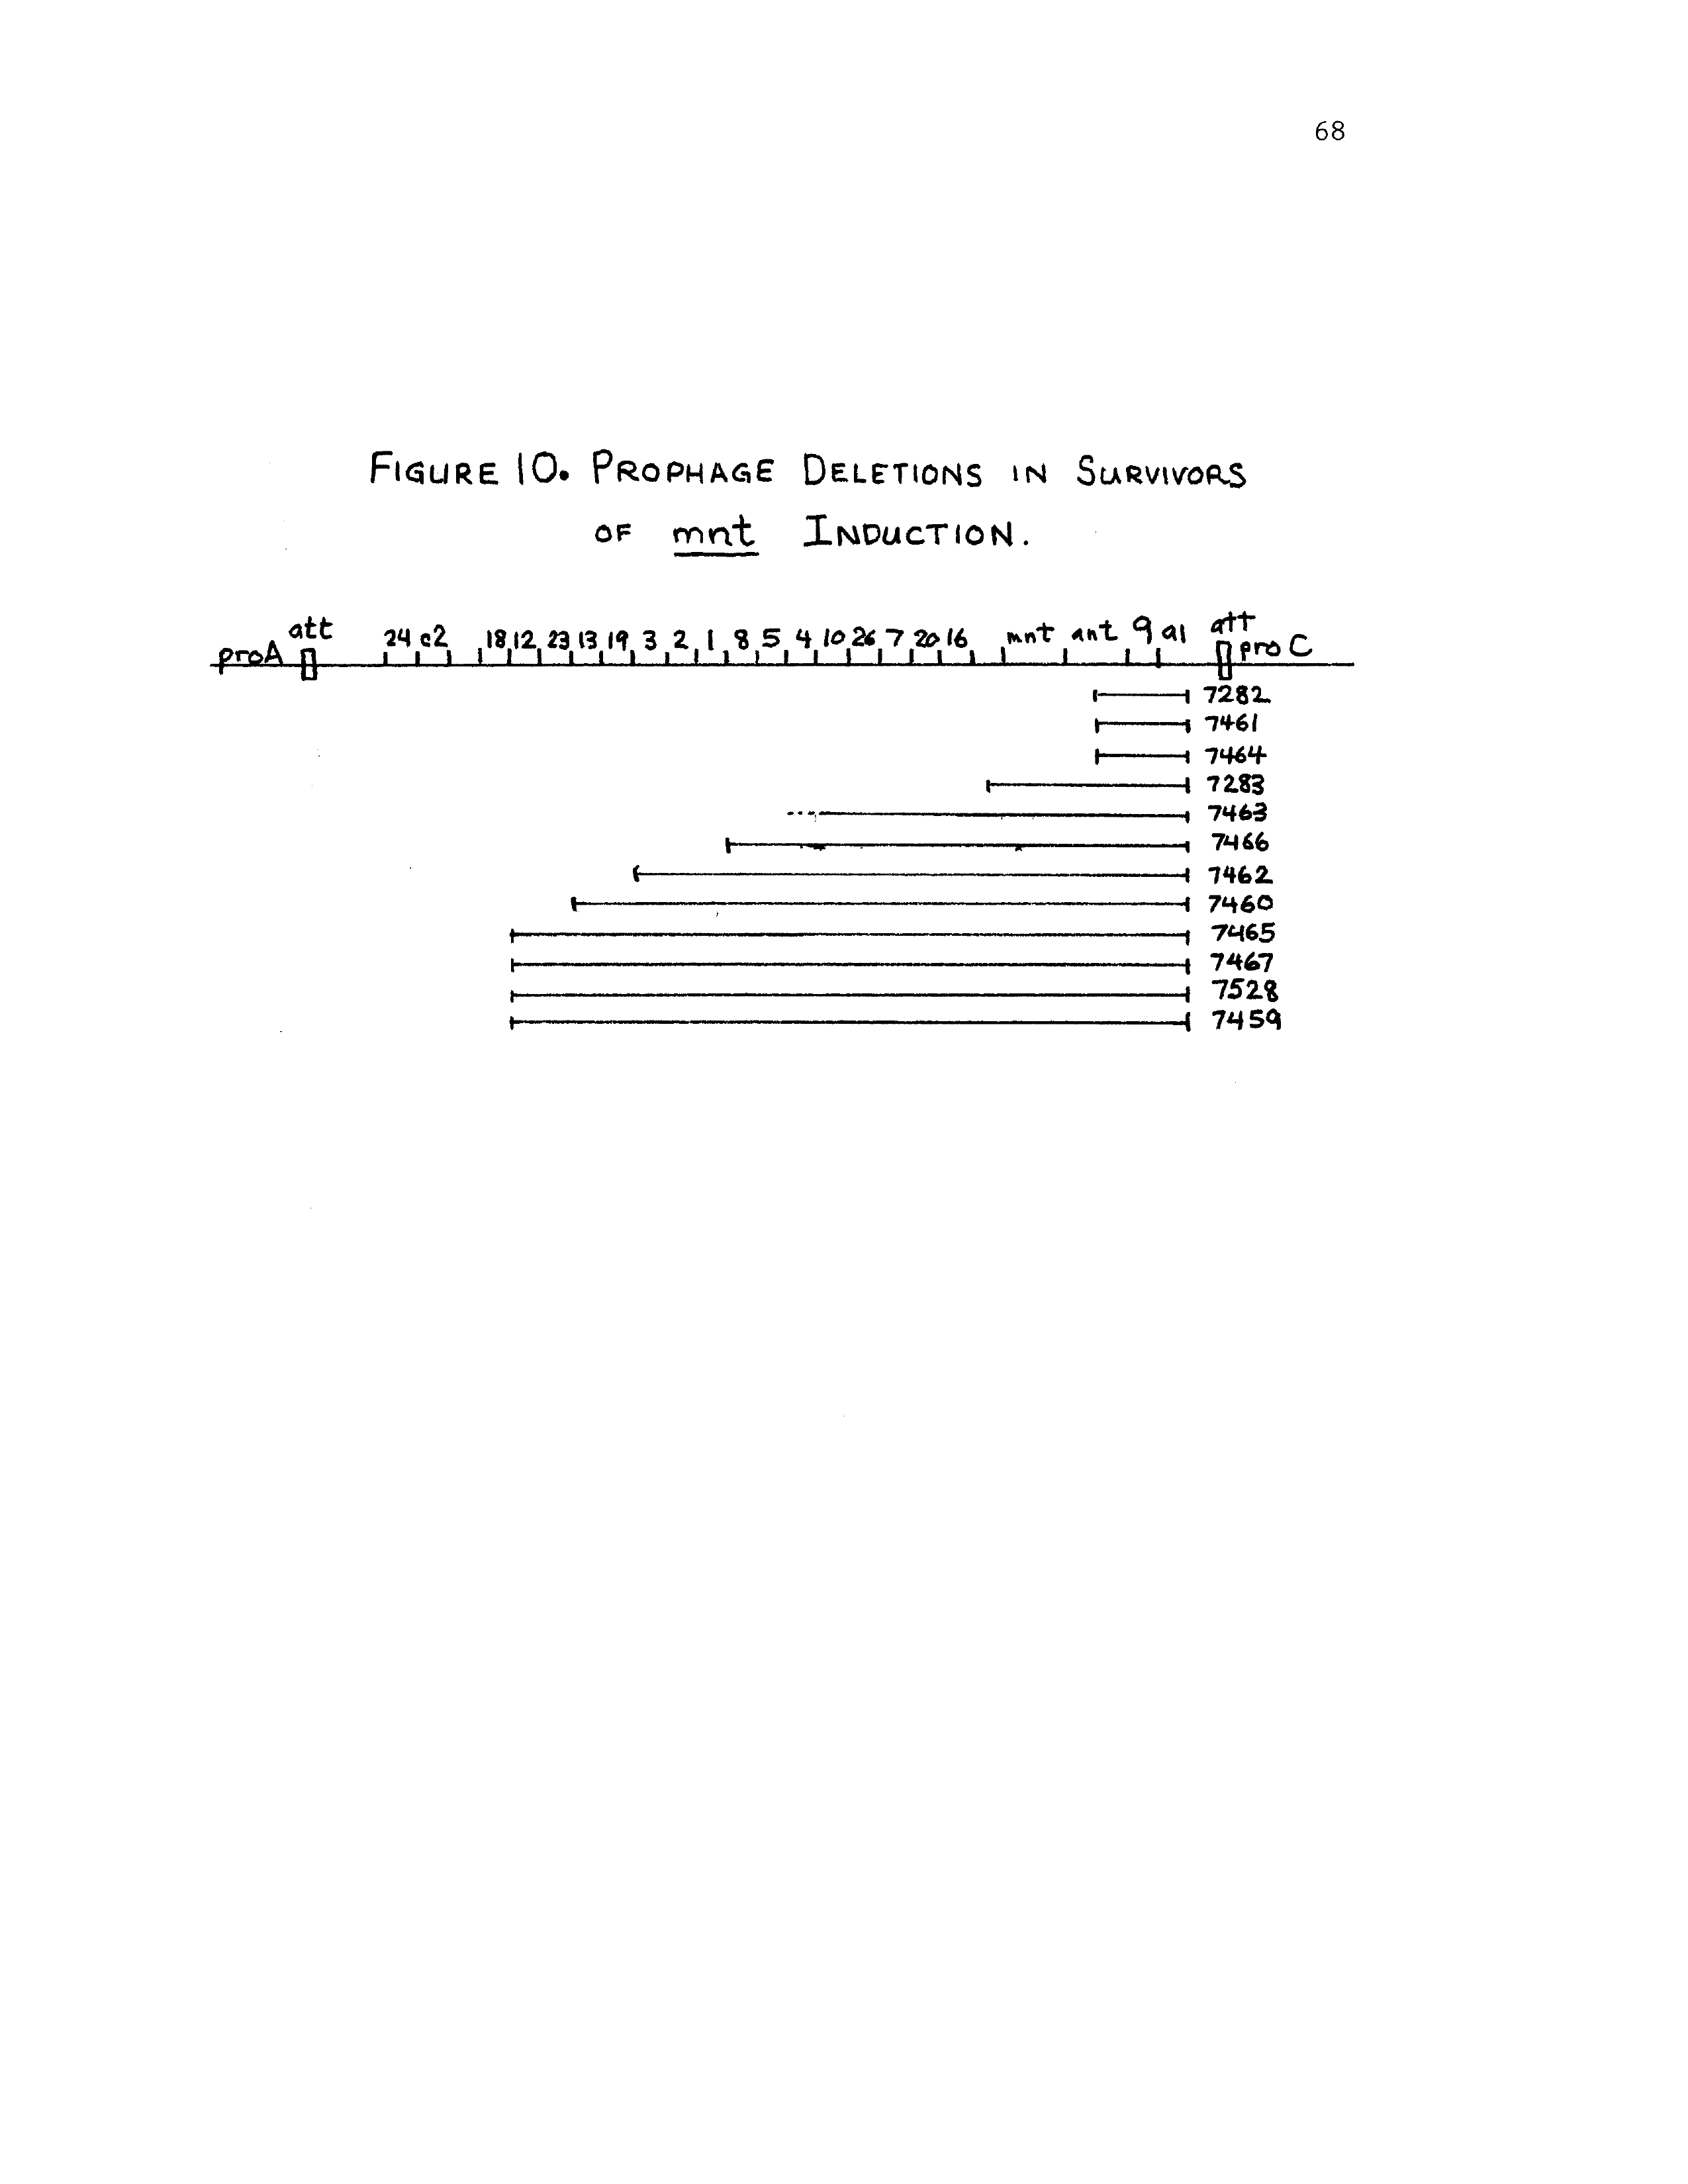 68
FIGURE 10. PROPHAGE DELETIONS IN SURVIVORS
OF mnt INDUCTION.
proA att 24 c2 18 12 23 13 19 3 2 1 8 5 4 10 26 7 20 16 mnt ant 9 a1 att proC
7282
7461
7464
7283
7463
7466
7462
7460
7465
7467
7528
7459